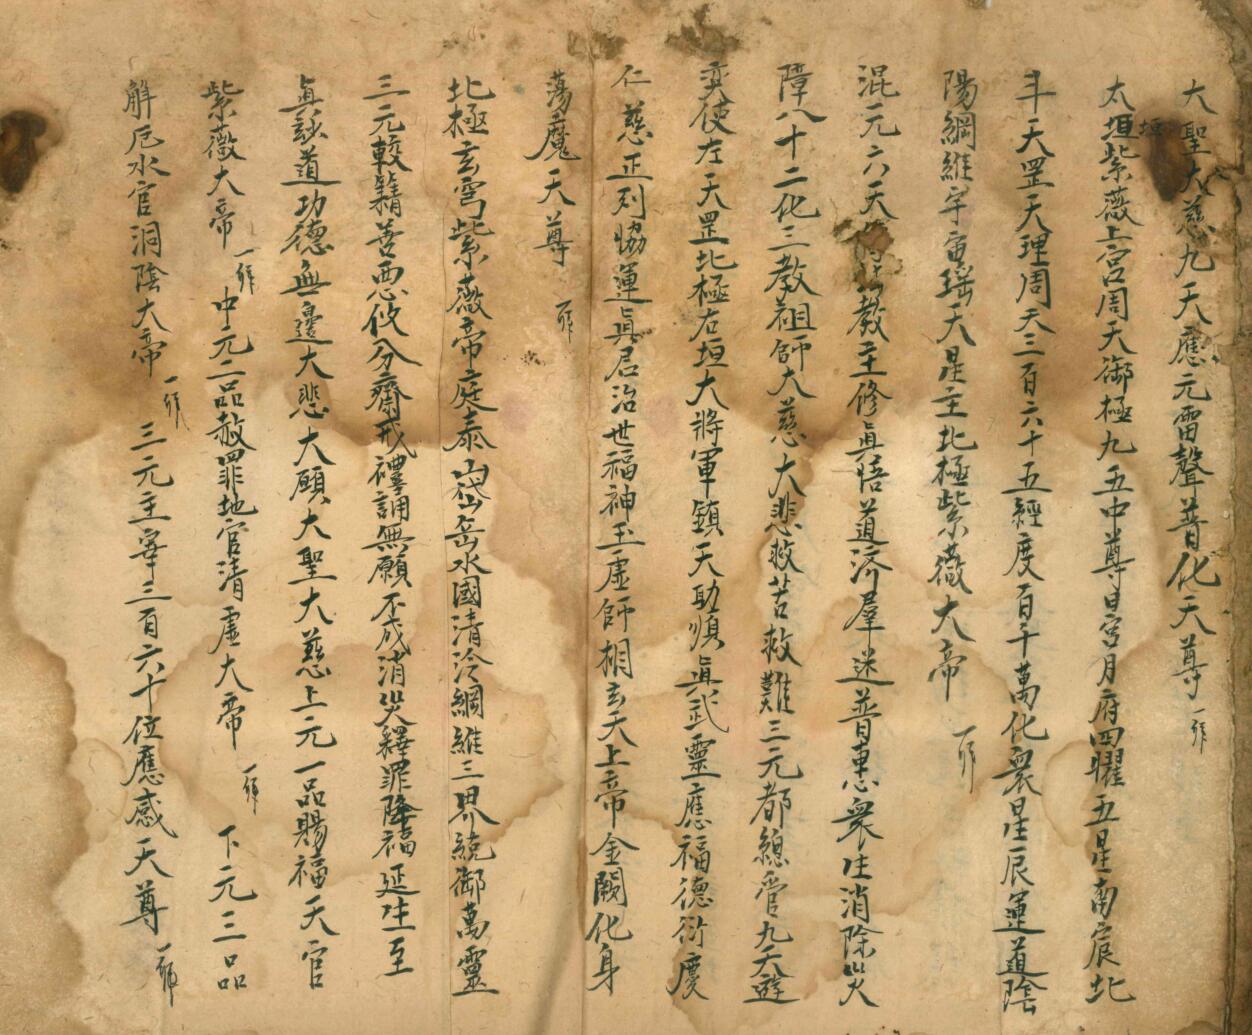 大聖大慈九天應元雷聲普化天尊 一拜
太垣紫薇上宮周天御極九五中尊日宮月府四曜五星南宸北
斗天罡天理周天三百六十五經度百千萬化衆星辰運道陰
陽綱維宇宙瑤天星主北極紫薇大帝 一拜
混元六天教主修眞悟道济羣迷普惠衆生消除災
障八十二化三教祖師大慈大悲救苦救難三元都總管九天遊
奕使左天罡北極右垣大將軍鎮天助順眞武靈應福德衍慶
仁慈正列協運眞君治世福神玉虛師相玄天上帝金闕化身
蕩魔天尊 一拜
北極玄穹紫薇帝庭泰山岱岳水國清泠綱維三界統御萬靈
三元較籍善惡攸分齋戒禮誦無願不成消災釋罪降福延生至
眞玅道功德無邊大悲大願大聖大慈上元一品賜福天官
紫薇大帝 一拜 中元二品赦罪地官清虛大帝 一拜 下元三品
解厄水官洞陰大帝 一拜 三元主宰三百六十位應感天尊 一拜